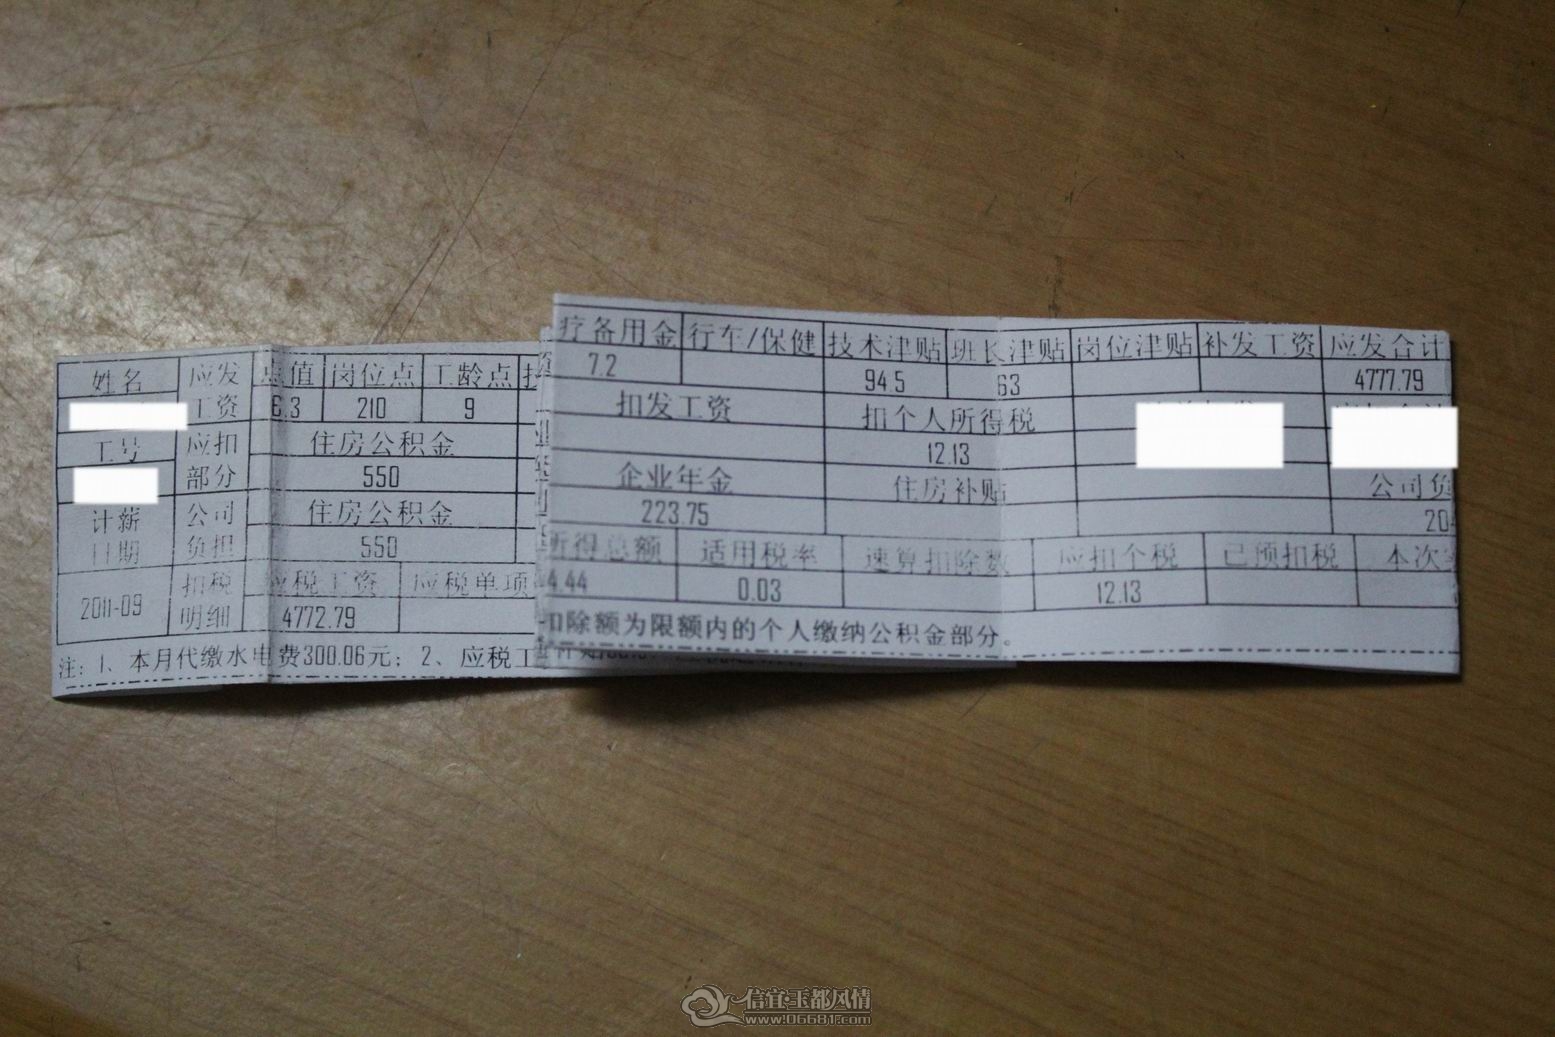 姓名 应发 值 岗位点 工龄点
工资 6.3 210 9
工号 应扣 住房公积金
部分 550
计薪 公司 住房公积金
日期 负担 550
2011-09 扣税 应税工资 应税单项
明细 4772.79
注:1、本月代缴水电费300.06元;2、应税工
疗备用金 行车/保健 技术津贴 班长津贴 岗位津贴 补发工资 应发合计
7.2 945 63 4777.79
扣发工资 扣个人所得税
12.13
企业年金 住房补贴 公司负
223.75 20
所得总额 适用税率 速算扣除数 应扣个税 已预扣税 本次
4.44 0.03 12.13
扣除额为限额内的个人缴纳公积金部分。
信宜玉都风情
www.06681.com